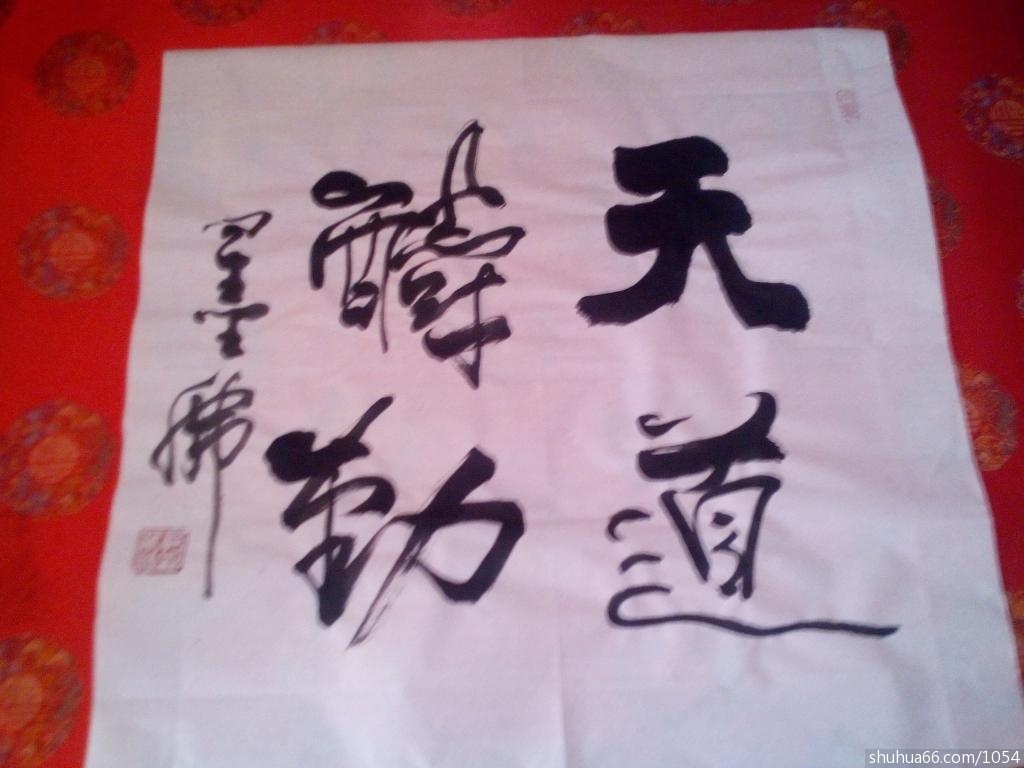 天道
酬勤
墨佛
shuhua66.com/1054